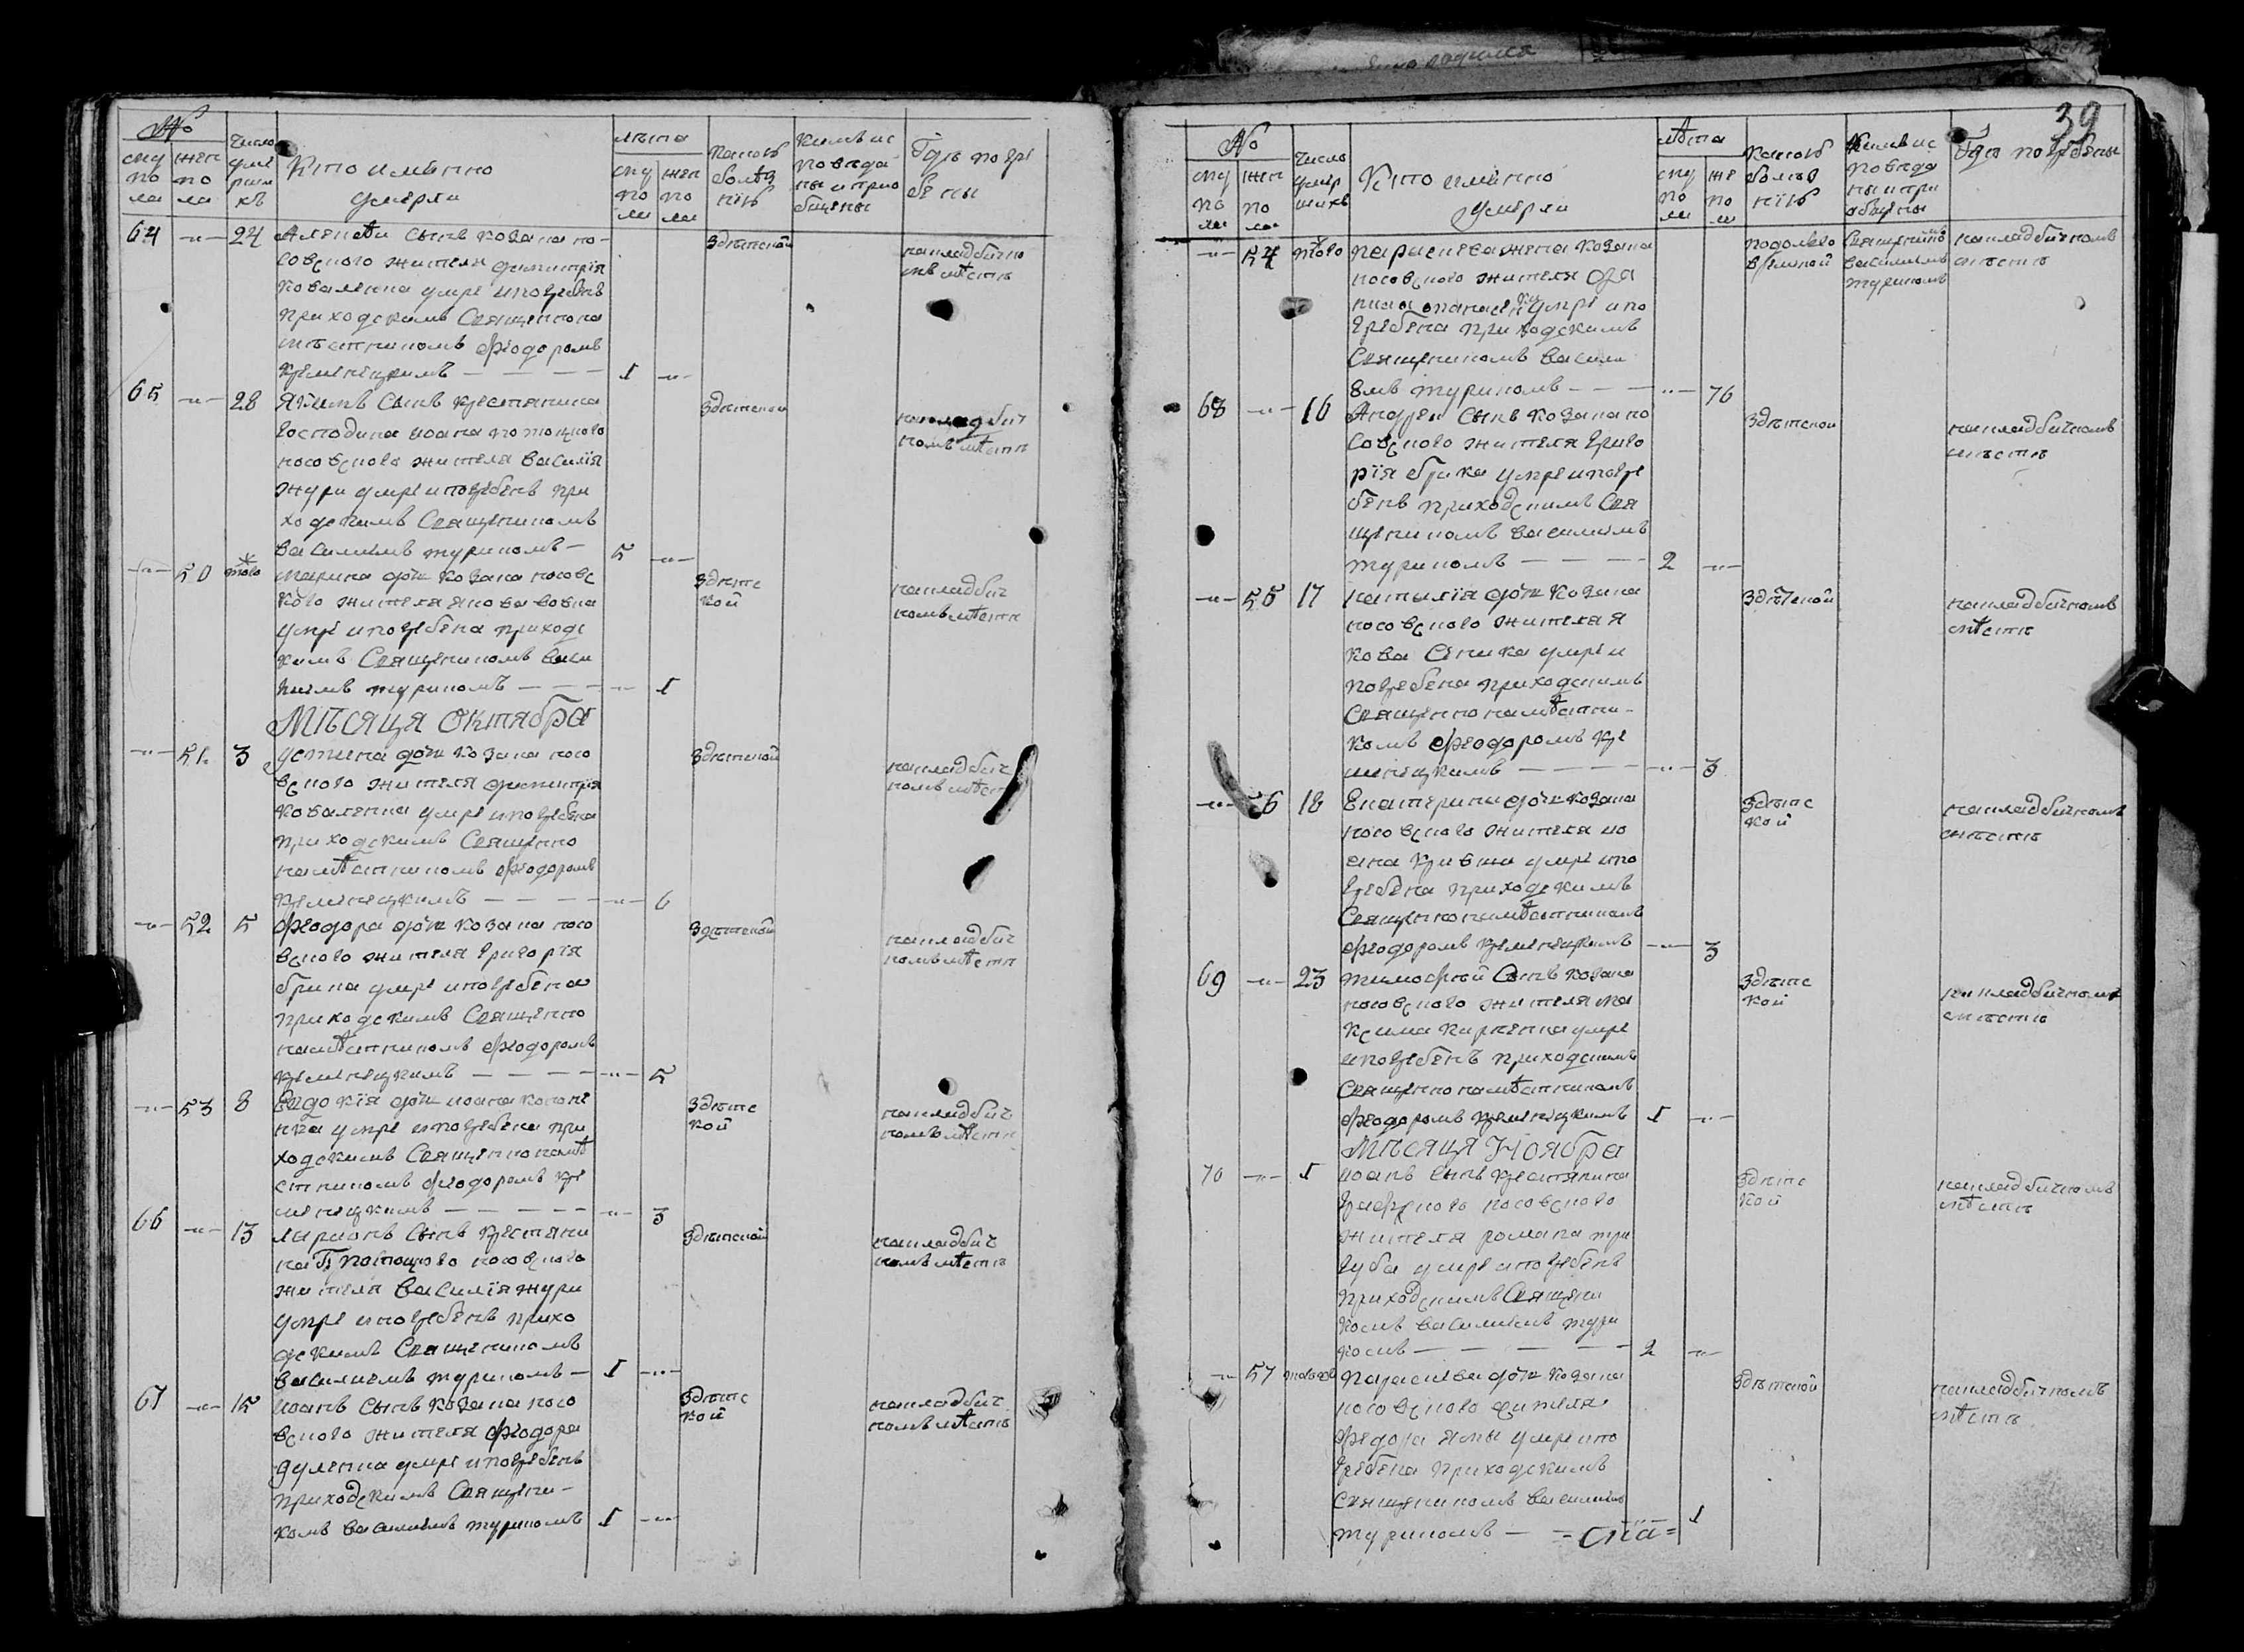 №
му по ла
жен по ла
Число умершихъ
Кто имѣнно умерли
лѣта
му по ли
жен по ли
какою болѣзнію
Кимъ исповѣданы и приобщены
Гдѣ погребены
64 -"- 24 Алексѣй Сынъ козака но-
совского жителя димитрія
коваленка умре и погребенъ
приходскимъ Священнона
мѣстникомъ феодоромъ
кременецкимъ — — — — 1 -"-
здѣтской
на кладбичном мѣстѣ
65 -"- 28 Якимъ Сынъ крестянина
Господина иоана потоцкого
носовского жителя василія
жури умре и погребенъ при
ходскимъ Священикомъ
василиемъ туриномъ — 5 -"-
здѣтской
на кладбич
номъ мѣстѣ
-"- 50 того марина дочь козака носовс
кого жителя яковова
умре и погребена приходс
кимъ Священикомъ васи
лиемъ туриномъ — — — -"- 1
здѣтс
кой
на кладбич
номъ мѣстѣ
Мѣсяця Октябра
-"- 51 3 устина дочь козака носо
вского жителя димитрія
коваленка умре и погребена
приходскимъ Священно
намѣстникомъ феодоромъ
кременецкимъ — — — — -"- 6
здѣтской
на кладбич
номъ мѣстѣ
-"- 52 5 феодора дочь козака носо
вского жителя григорія
брика умре и погребена
приходскимъ Священно
намѣстникомъ феодоромъ
кременецкимъ — — — — -"- 5
здѣтской
на кладбич
номъ мѣстѣ
-"- 53 8 Евдокія дочь иоана кононе
нка умре и погребена при
ходскимъ Священнонамѣ
стникомъ феодоромъ кре
менецкимъ — — — — — -"- 3
здѣтс
кой
на кладбич
номъ мѣстѣ
66 -"- 13 ларионъ Сынъ Крестяни
на Г: потоцкого носовского
жителя василія жури
умре и погребенъ прихо
дскимъ Священикомъ
василиемъ туриномъ — 1 -"-
здѣтской
на кладбич
номъ мѣстѣ
67 -"- 15 иоанъ Сынъ козака носо
вского жителя феодора
дуленка умре и погребенъ
приходскимъ Священи-
комъ василиемъ туриномъ 1 -"-
здѣтс
кой
на кладбич
номъ мѣстѣ
39
№
му по ла
жен по ла
Число умершихъ
Кто имѣнно умерли
лѣта
му по ли
же по ли
какою болѣзнію
Кимъ исповѣданы и приобщены
Гдѣ погребены
-"- 54 того параскева жена козака
носовского жителя
умре и по
гребена приходскимъ
Священикомъ васили
емъ туриномъ — — — -"- 76
Священикомъ
василиемъ
туриномъ
на кладбичномъ
мѣстѣ
68 -"- 16 Андрей Сынъ козака но
совского жителя григо
рія брика умре и погре
бенъ приходскимъ Свя
щеникомъ василиемъ
туриномъ — — — — 2 -"-
здѣтской
на кладбичномъ
мѣстѣ
-"- 55 17 наталія дочь козака
носовского жителя я
кова умре и
погребена приходскимъ
Священнонамѣстни-
комъ феодоромъ кре
менецкимъ — — — — -"- 3
здѣтской
на кладбичномъ
мѣстѣ
-"- 56 18 Екатерина дочь козака
носовского жителя ио
ана умре и по
гребена приходскимъ
Священнонамѣстникомъ
феодоромъ кременецкимъ -"- 3
здѣтс
кой
на кладбичномъ
мѣстѣ
69 -"- 23 тимофѣй Сынъ козака
носовского жителя ма
ксима карпенка умре
и погребенъ приходскимъ
Священнонамѣстникомъ
феодоромъ кременецкимъ 1 -"-
здѣтс
кой
на кладбичномъ
мѣстѣ
Мѣсяця Ноября
70 -"- 1 иоанъ Сынъ крестянина
графского носовского
жителя романа три
губа умре и погребенъ
приходскимъ Священи
комъ василиемъ тури
номъ — — — — — 2 -"-
здѣтс
кой
на кладбичномъ
мѣстѣ
-"- 57 параскева дочь козака
носовского жителя
федора ямы умре и по
гребена приходскимъ
священикомъ василиемъ
туриномъ — 1
здѣтской
на кладбичномъ
мѣстѣ